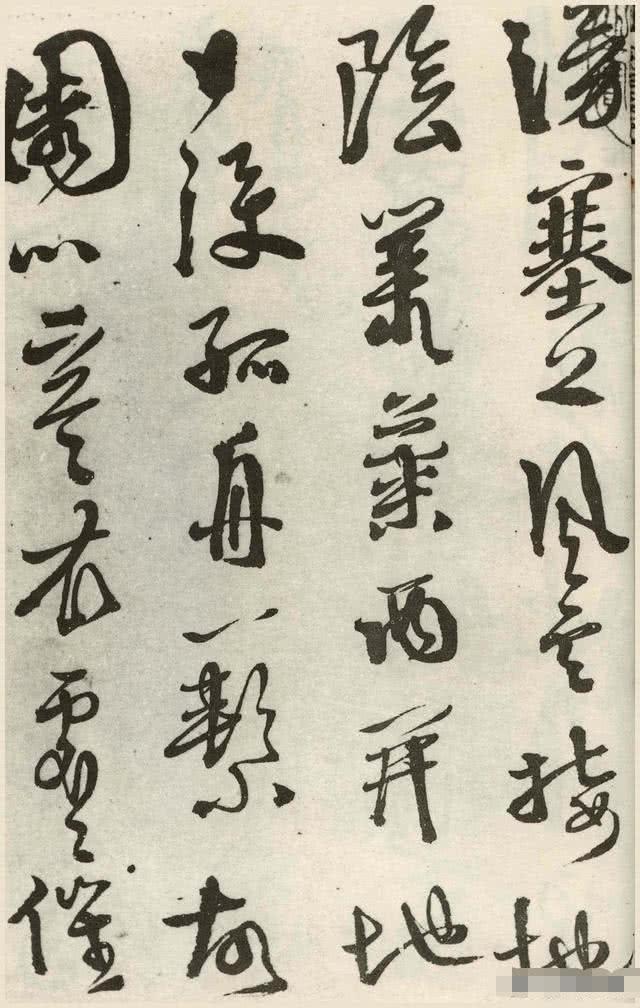 湧塞上風雲接地
陰叢菊兩開他
日淚孤舟一繫故
園心寒衣處〻催